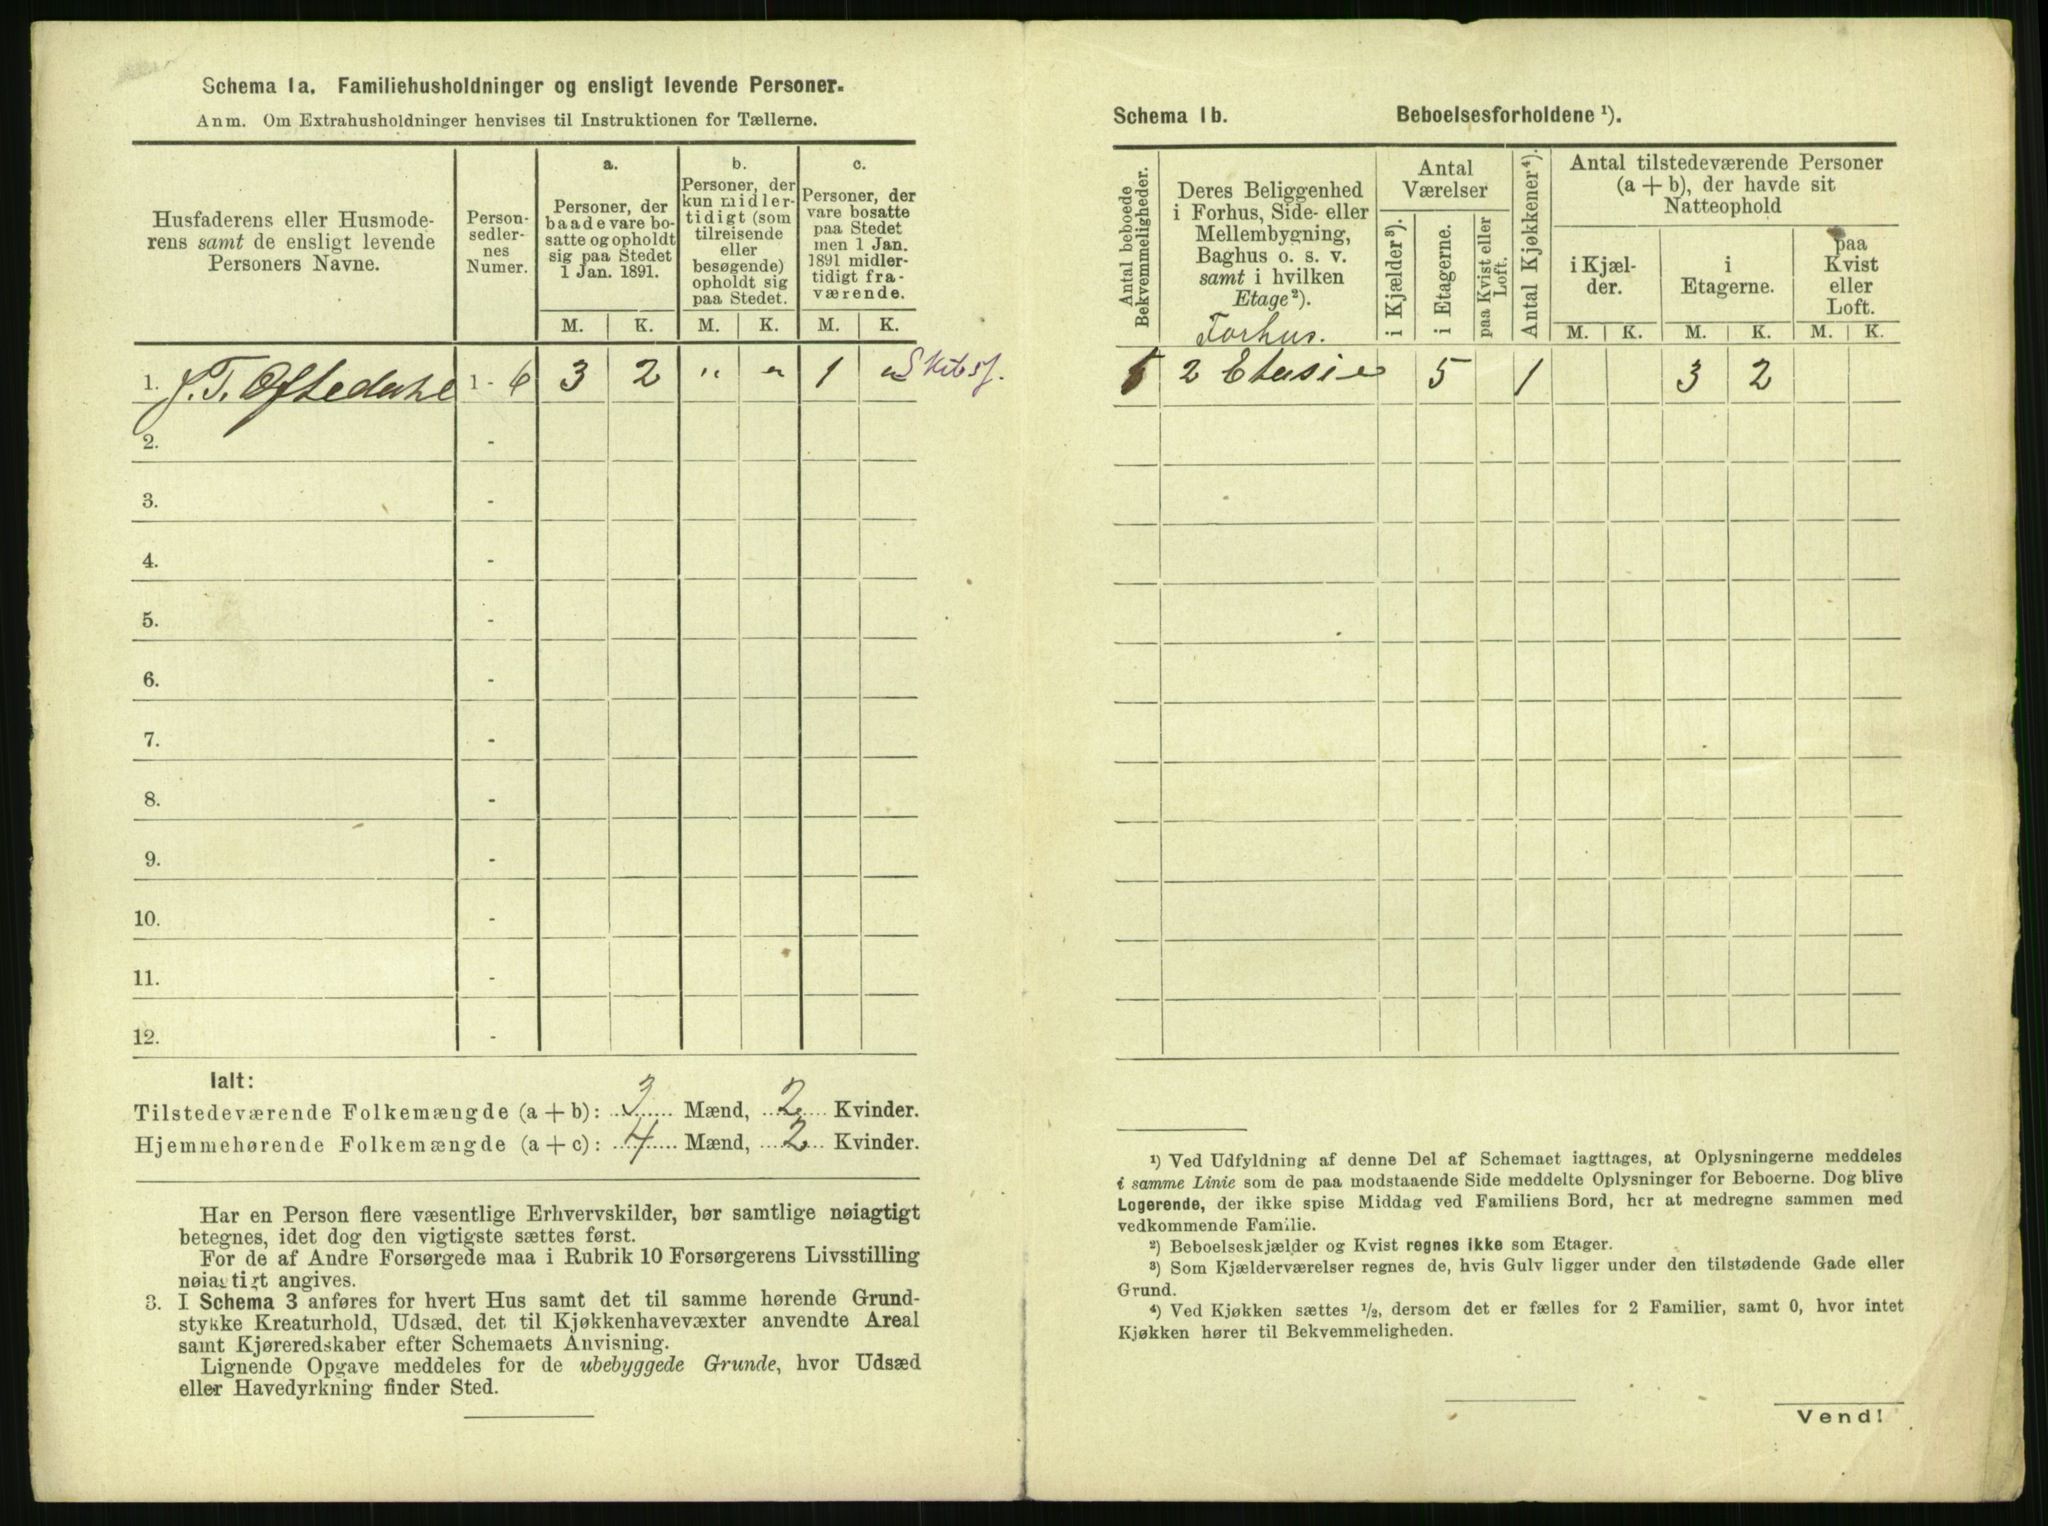 Schema 1a. Familiehusholdninger og ensligt levende Personer.
Anm. Om Extrahusholdninger henvises til Instruktionen for Tællerne.
Husfaderens eller Husmode-
rens samt de ensligt levende
Personers Navne.
Person-
sedler-
nes
Numer.
a.
Personer, der
baade vare bo-
satte og opholdt
sig paa Stedet
1 Jan. 1891.
b.
Personer, der
kun midler-
tidigt (som
tilreisende
eller
besøgende)
opholdt sig
paa Stedet.
c.
Personer, der
vare bosatte
paa Stedet
men 1 Jan.
1891 midler-
tidigt fra-
værende.
M. K. M. K. M. K.
1. J. T. Oftedahl 1 - 6 3 2 " " 1 " Skibsf.
2. -
3. -
4. -
5. -
6. -
7. -
8. -
9. -
10. -
11. -
12. -
Ialt:
Tilstedeværende Folkemængde (a + b): 3 Mænd, 2 Kvinder.
Hjemmehørende Folkemængde (a + c): 4 Mænd, 2 Kvinder.
Har en Person flere væsentlige Erhvervskilder, bør samtlige nøiagtigt
betegnes, idet dog den vigtigste sættes først.
For de af Andre Forsørgede maa i Rubrik 10 Forsørgerens Livsstilling
nøiagtigt angives.
3. I Schema 3 anføres for hvert Hus samt det til samme hørende Grund-
stykke Kreaturhold, Udsæd, det til Kjøkkenhavevæxter anvendte Areal
samt Kjøreredskaber efter Schemaets Anvisning.
Lignende Opgave meddeles for de ubebyggede Grunde, hvor Udsæd
eller Havedyrkning finder Sted.
Schema 1b. Beboelsesforholdene ¹).
Antal beboede
Bekvemmeligheder.
Deres Beliggenhed
i Forhus, Side- eller
Mellembygning,
Baghus o. s. v.
samt i hvilken
Etage²).
Forhus.
Antal
Værelser
i Kjælder³).
i Etagerne.
paa Kvist eller
Loft.
Antal Kjøkkener⁴).
Antal tilstedeværende Personer
(a + b), der havde sit
Natteophold
i Kjæl-
der.
i
Etagerne.
paa
Kvist
eller
Loft.
M. K. M. K. M. K.
2 Etasie 5 1 3 2
¹) Ved Udfyldning af denne Del af Schemaet iagttages, at Oplysningerne meddeles
i samme Linie som de paa modstaaende Side meddelte Oplysninger for Beboerne. Dog blive
Logerende, der ikke spise Middag ved Familiens Bord, her at medregne sammen med
vedkommende Familie.
²) Beboelseskjælder og Kvist regnes ikke som Etager.
³) Som Kjælderværelser regnes de, hvis Gulv ligger under den tilstødende Gade eller
Grund.
⁴) Ved Kjøkken sættes ½, dersom det er fælles for 2 Familier, samt 0, hvor intet
Kjøkken hører til Bekvemmeligheden.
Vend!